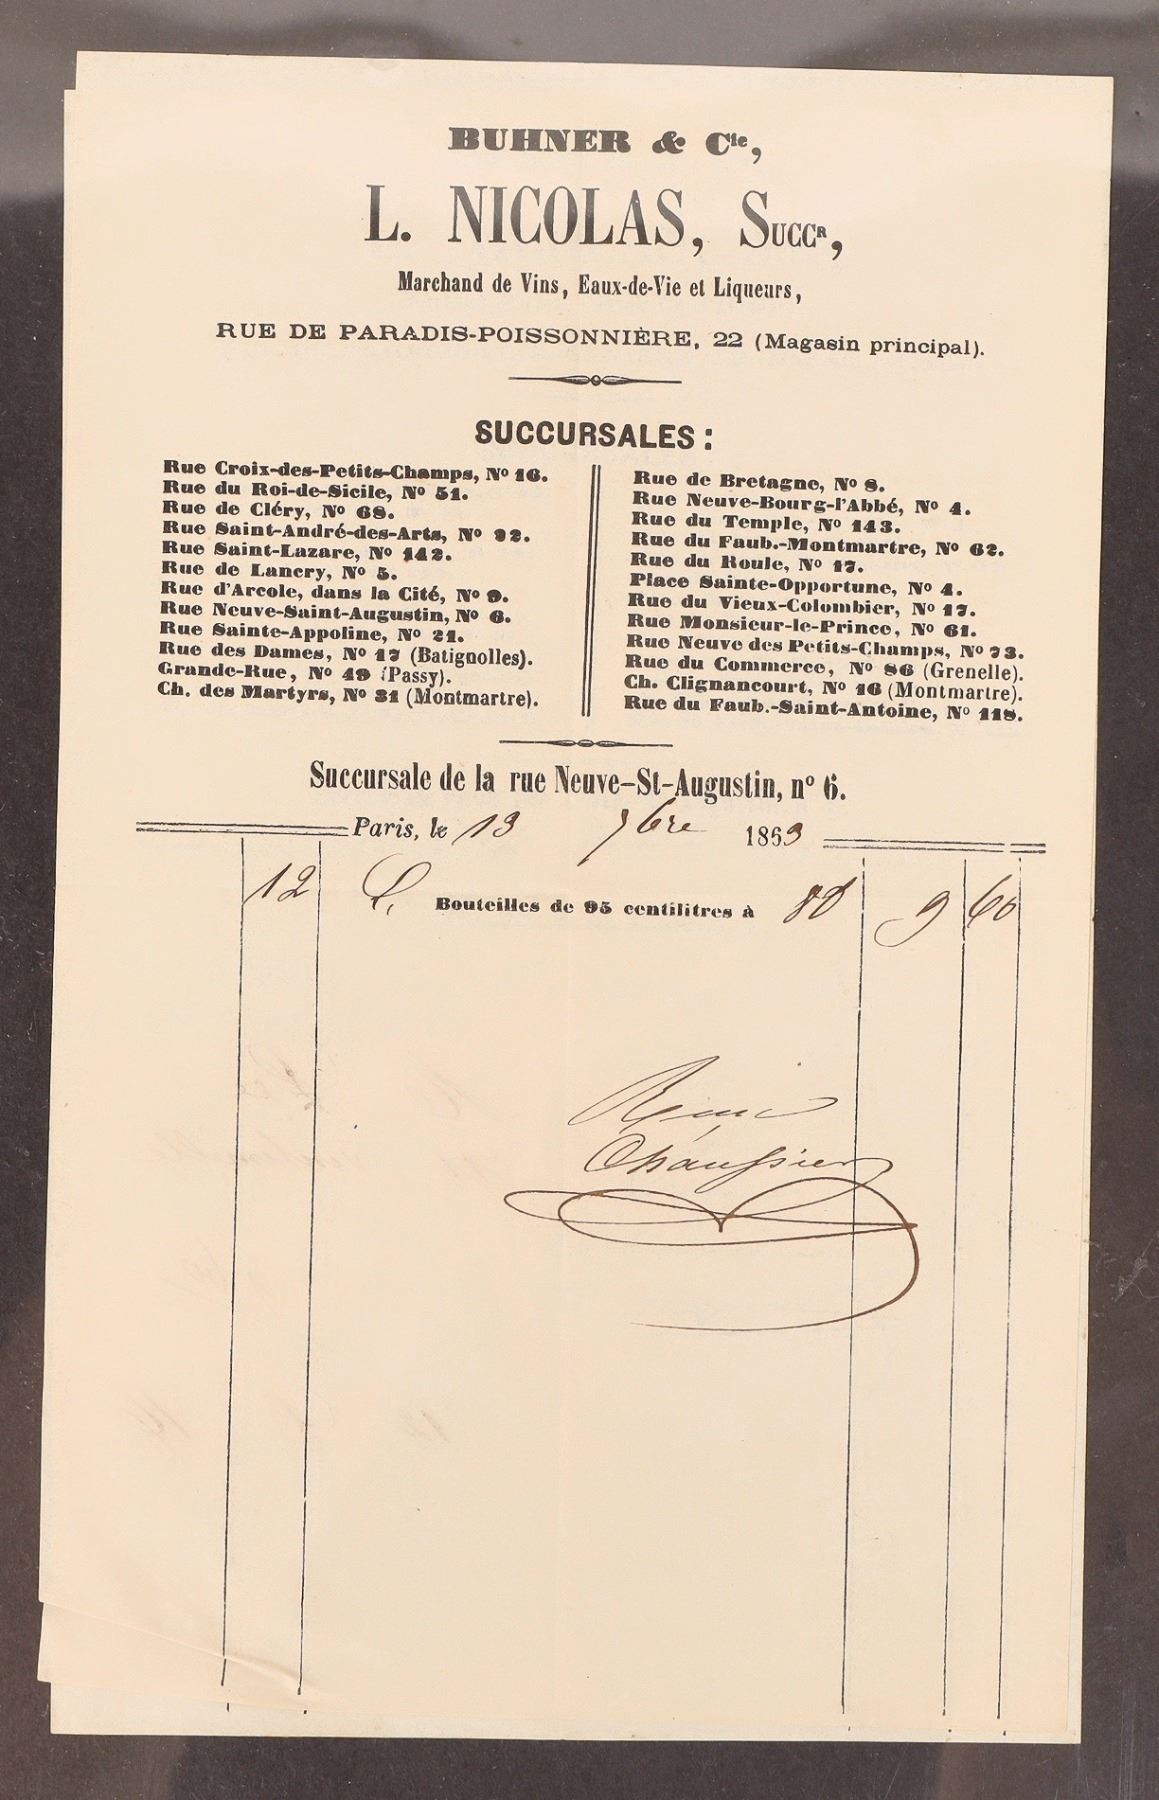 BUHNER & Cie,
L. NICOLAS, SUCCR,
Marchand de Vins, Eaux-de-Vie et Liqueurs,
RUE DE PARADIS-POISSONNIÈRE, 22 (Magasin principal).
SUCCURSALES :
Rue Croix-des-Petits-Champs, No 16.
Rue du Roi-de-Sicile, No 51.
Rue de Cléry, No 68.
Rue Saint-André-des-Arts, No 22.
Rue Saint-Lazare, No 142.
Rue de Lancry, No 5.
Rue d'Arcole, dans la Cité, No 9.
Rue Neuve-Saint-Augustin, No 6.
Rue Sainte-Appoline, No 21.
Rue des Dames, No 17 (Batignolles).
Grande-Rue, No 49 (Passy).
Ch. des Martyrs, No 31 (Montmartre).
Rue de Bretagne, No 8.
Rue Neuve-Bourg-l'Abbé, No 4.
Rue du Temple, No 143.
Rue du Faub.-Montmartre, No 62.
Rue du Roule, No 17.
Place Sainte-Opportune, No 4.
Rue du Vieux-Colombier, No 17.
Rue Monsieur-le-Prince, No 61.
Rue Neuve des Petits-Champs, No 73.
Rue du Commerce, No 86 (Grenelle).
Ch. Clignancourt, No 16 (Montmartre).
Rue du Faub.-Saint-Antoine, No 118.
Succursale de la rue Neuve-St-Augustin, no 6.
Paris, le 13 9bre 1863
12 Bouteilles de 95 centilitres à 80 9 60
Chaussier